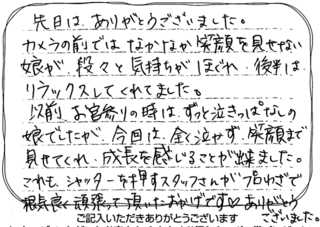 先日は、ありがとうございました。
カメラの前では なかなか 笑顔を見せない
娘が、段々と 気持ちが ほぐれ、後半は
リラックスしてくれてました。
以前、お宮参りの時は、ずっと泣きっぱなしの
娘でしたが、今回は、全く泣かず、笑顔まで
見せてくれ、成長を感じることが出来ました。
これも、シャッターを押すスタッフさんが プロわざで
根気良く頑張って頂いたおかげです♡ ありがとう
ございました。
ご記入いただきありがとうございます